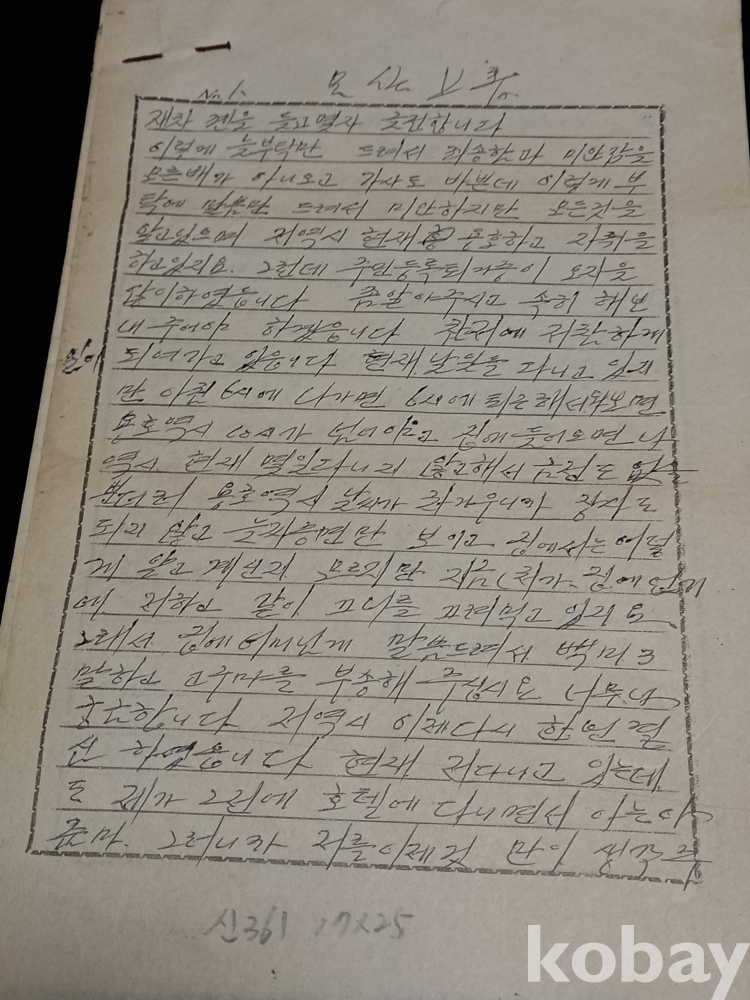 No 1.
재차 펜을 들고 몇자 긋전합니다
이렇게 늘 부탁만 드려서 죄송함과 미안감을
모른배가 아니오고 가사도 바쁜데 이렇게 부
탁에 말씀만 드려서 미안하지만 모든것을
알고있으며 저역시 현재 용호하고 자취을
하고있지요. 그런데 주민등록퇴거증이 오자을
달이하였읍니다 좀알아주시고 속히 해보
내 주어야 하겠읍니다
되여가고 있읍니다 현재 날일을 다니고 있지
만 아침 6시에 나가면 6시에 퇴근해서와보면
용호역시 10시가 넘어야고 집에들어오면 나
역시 현재 몇일다니지 않고해서 돈도 없는
용호역시 날씨가 차가우니까 장사도
되지 않고 눈짜증면만 보이고 집에서는 어떻
게 알고 계신지 모르지만 지금 제가 집에 있기
에 저하고 같이 끄니를 끄려먹고 있지요
그래서 집에어머님게 말씀드려서 백미 3
말하고 고구마를 부송해 주십시요 너무나
궁합니다 저역시 이제다시 한번 결
신 하였읍니다 현재 저다니고 있는데
도 제가 그전에 호텔에 다니면서 아는아
줌마. 그러니까 저를이제것 만이 생각
신361 17x25
kobay